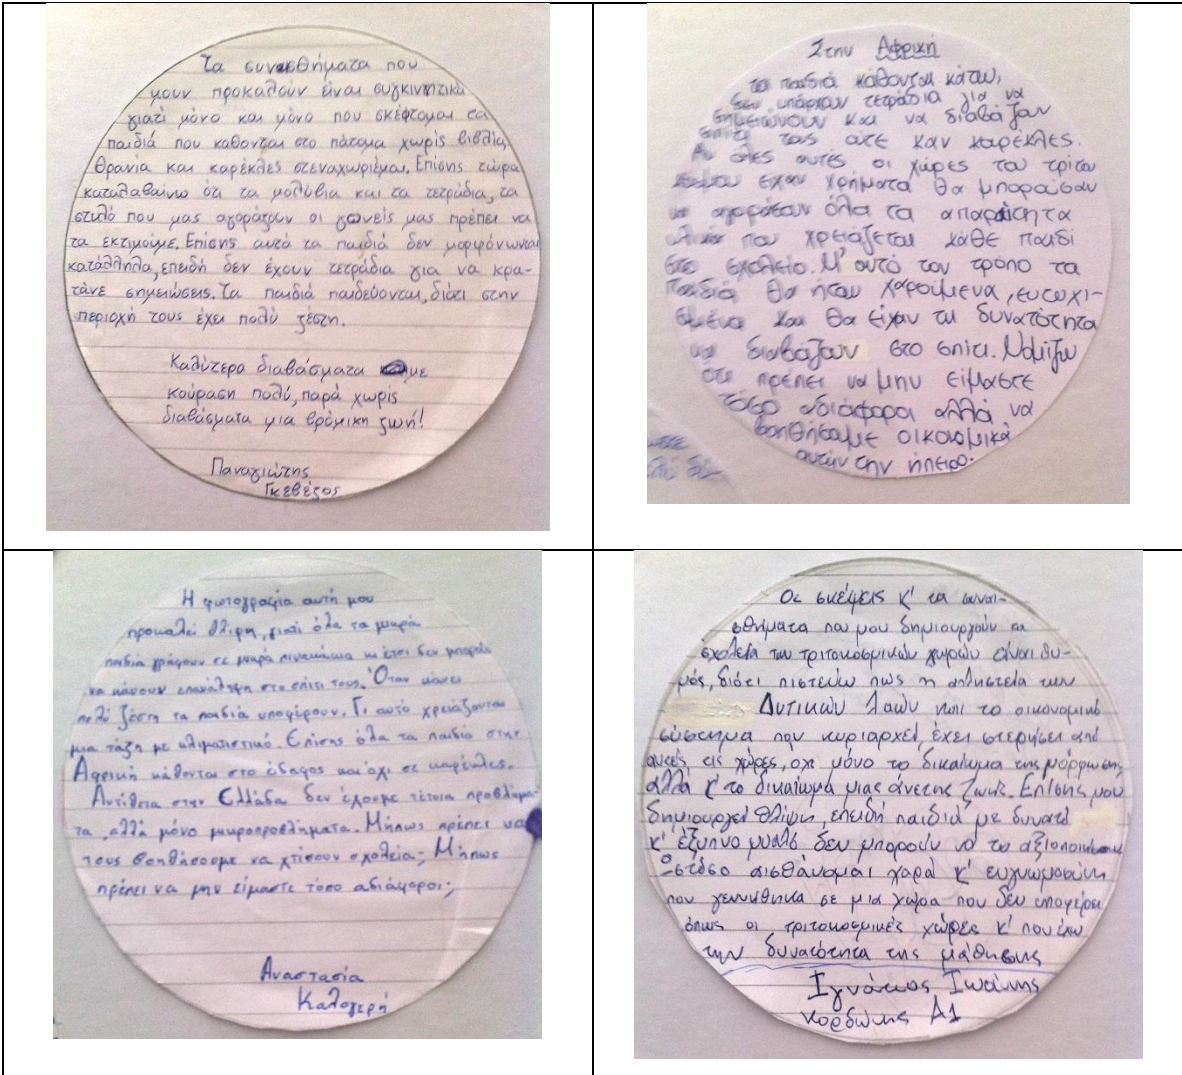 Τα συναισθήματα που
μουν προκαλούν είναι συγκινητικά
γιατί μόνο και μόνο που σκέφτομαι τα
παιδιά που καθονται στο πάτωμα χωρίς βιβλία,
θρανία και καρέκλες στεναχωριέμαι. Επίσης τώρα
καταλαβαίνω ότι τα μολύβια και τα τετράδια, τα
στυλό που μας αγοράζουν οι γονείς μας πρέπει να
τα εκτιμούμε. Επίσης αυτά τα παιδιά δεν μορφόνωνται
κατάλληλα, επειδή δεν έχουν τετράδια για να κρα-
τάνε σημειώσεις. Τα παιδιά παιδεύονται, διότι στην
περιοχή τους έχει πολύ ζέστη.
Καλύτερα διαβάσματα με
κούραση πολύ, παρά χωρίς
διαβάσματα μια βρόμικη ζωή!
Παναγιώτης
Γκεβέζος
Στην Αφρική
τα παιδιά κάθονται κάτω,
δεν υπάρχουν τετράδια για να
σημειώνουν και να διαβάζουν
σπίτι τους ούτε καν καρέκλες.
Αν όλες αυτές οι χώρες του τρίτου
κόσμου είχαν χρήματα θα μπορούσαν
να αγοράσουν όλα τα απαραίτητα
υλικά που χρειάζεται κάθε παιδί
στο σχολείο. Μ' αυτό τον τρόπο τα
παιδιά θα ήταν χαρούμενα, ευτυχι-
σμένα και θα είχαν τη δυνατότητα
να διαβάζουν στο σπίτι. Νομίζω
ότι πρέπει να μην είμαστε
τόσο αδιάφοροι αλλά να
βοηθήσουμε οικονομικά
αυτήν την ήπειρο.
Η φωτογραφία αυτή μου
προκαλεί θλίψη, γιατί όλα τα μικρά
παιδιά γράφουν σε μικρά πινακάκια κι έτσι δεν μπορούν
να κάνουν επανάληψη στο σπίτι τους. Όταν κάνει
πολύ ζέστη τα παιδιά υποφέρουν. Γι αυτό χρειάζονται
μια τάξη με κλιματιστικό. Επίσης όλα τα παιδιά στην
Αφρική κάθονται στο έδαφος και όχι σε καρέκλες.
Αντίθετα στην Ελλάδα δεν έχουμε τέτοια προβλήμα-
τα, αλλά μόνο μικροπροβλήματα. Μήπως πρέπει να
τους βοηθήσουμε να χτίσουν σχολεία; Μήπως
πρέπει να μην είμαστε τόσο αδιάφοροι;
Αναστασία
Καλογερή
Οι σκέψεις κ' τα συναι-
σθήματα που μου δημιουργούν τα
σχολεία των τριτοκοσμικών χωρών είναι θυ-
μός, διότι πιστεύω πως η απληστεία των
Δυτικών λαών και το οικονομικό
σύστημα που κυριαρχεί, έχει στερήσει από
αυτές τις χώρες, όχι μόνο το δικαίωμα της μόρφωσης
αλλά κ' το δικαίωμα μιας άνετης ζωής. Επίσης μου
δημιουργεί θλίψη, επειδή παιδιά με δυνατό
κ' έξυπνο μυαλό δεν μπορούν να το αξιοποιήσουν
Ωστόσο αισθάνομαι χαρά κ' ευγνωμοσύνη
που γεννήθηκα σε μια χώρα που δεν υποφέρει
όπως οι τριτοκοσμικές χώρες κ' που έχω
την δυνατότητα της μάθησης
Ιγνάτιος Ιωάννης
Κορδώνης Α1